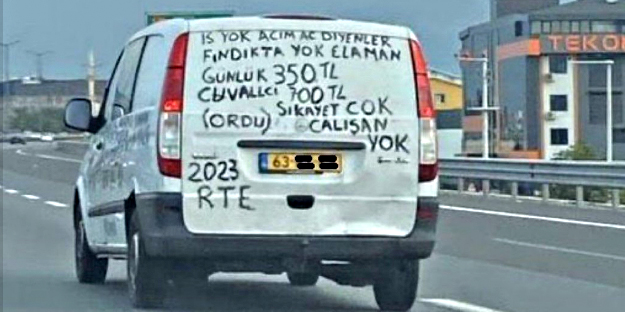 İS YOK AÇIM AÇ DİYENLER
FINDIKTA YOK ELAMAN
GÜNLÜK 350 TL
CUVALLCI 700 TL
(ORDU) SİKAYET COK
ÇALIŞAN
YOK
63
2023
RTE
TEKO